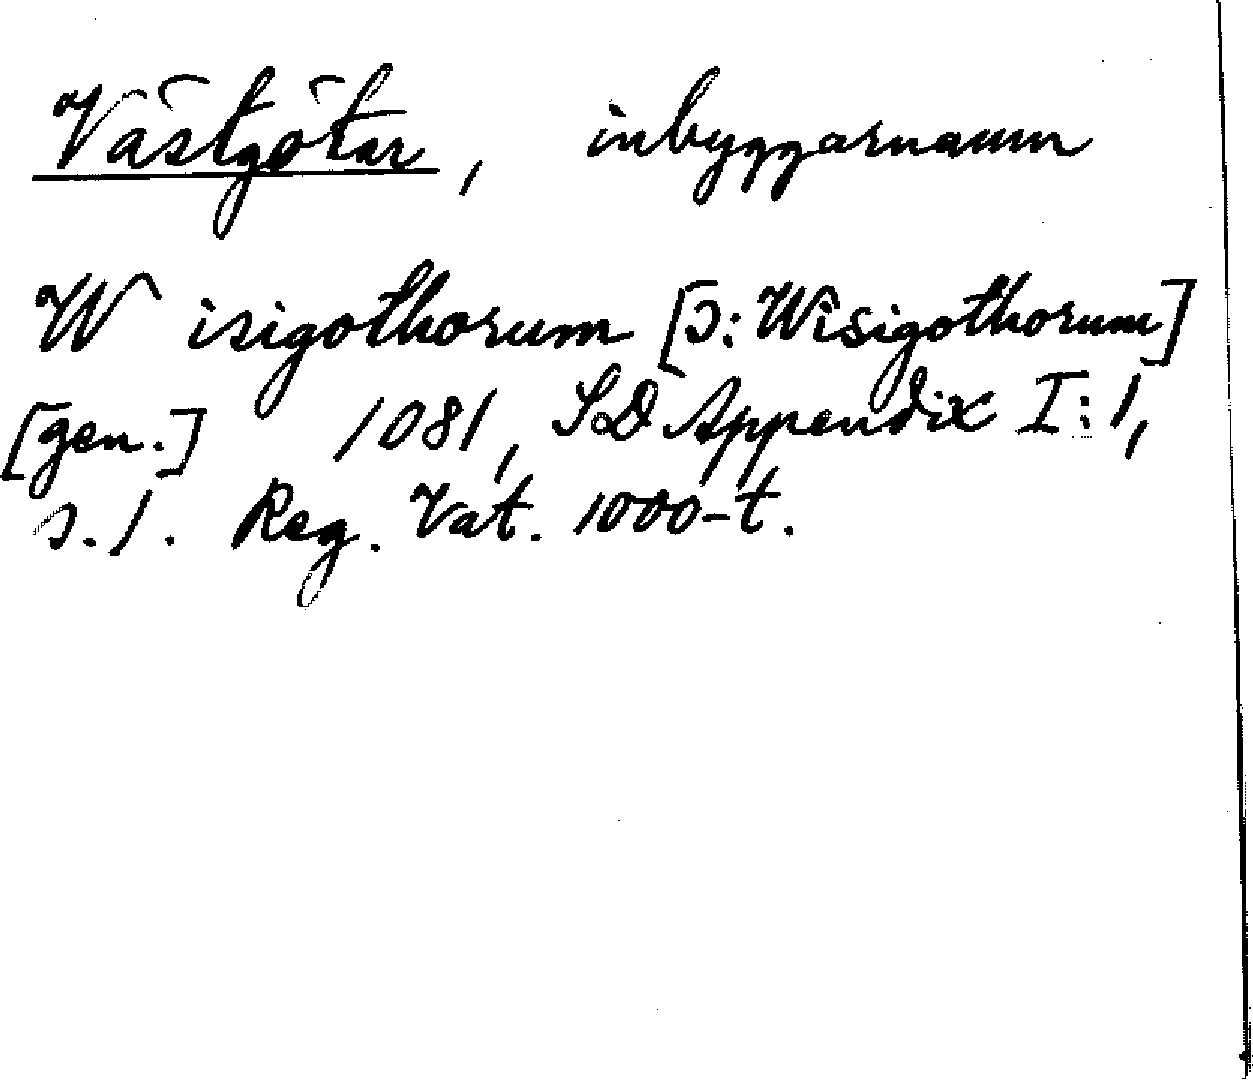 Västgötar, inbyggarnamn
W isigothorum [ɔ: Wisigothorum]
[gen.] 1081, SD Appendix I:1,
s.1. Reg. Vat. 1000-t.